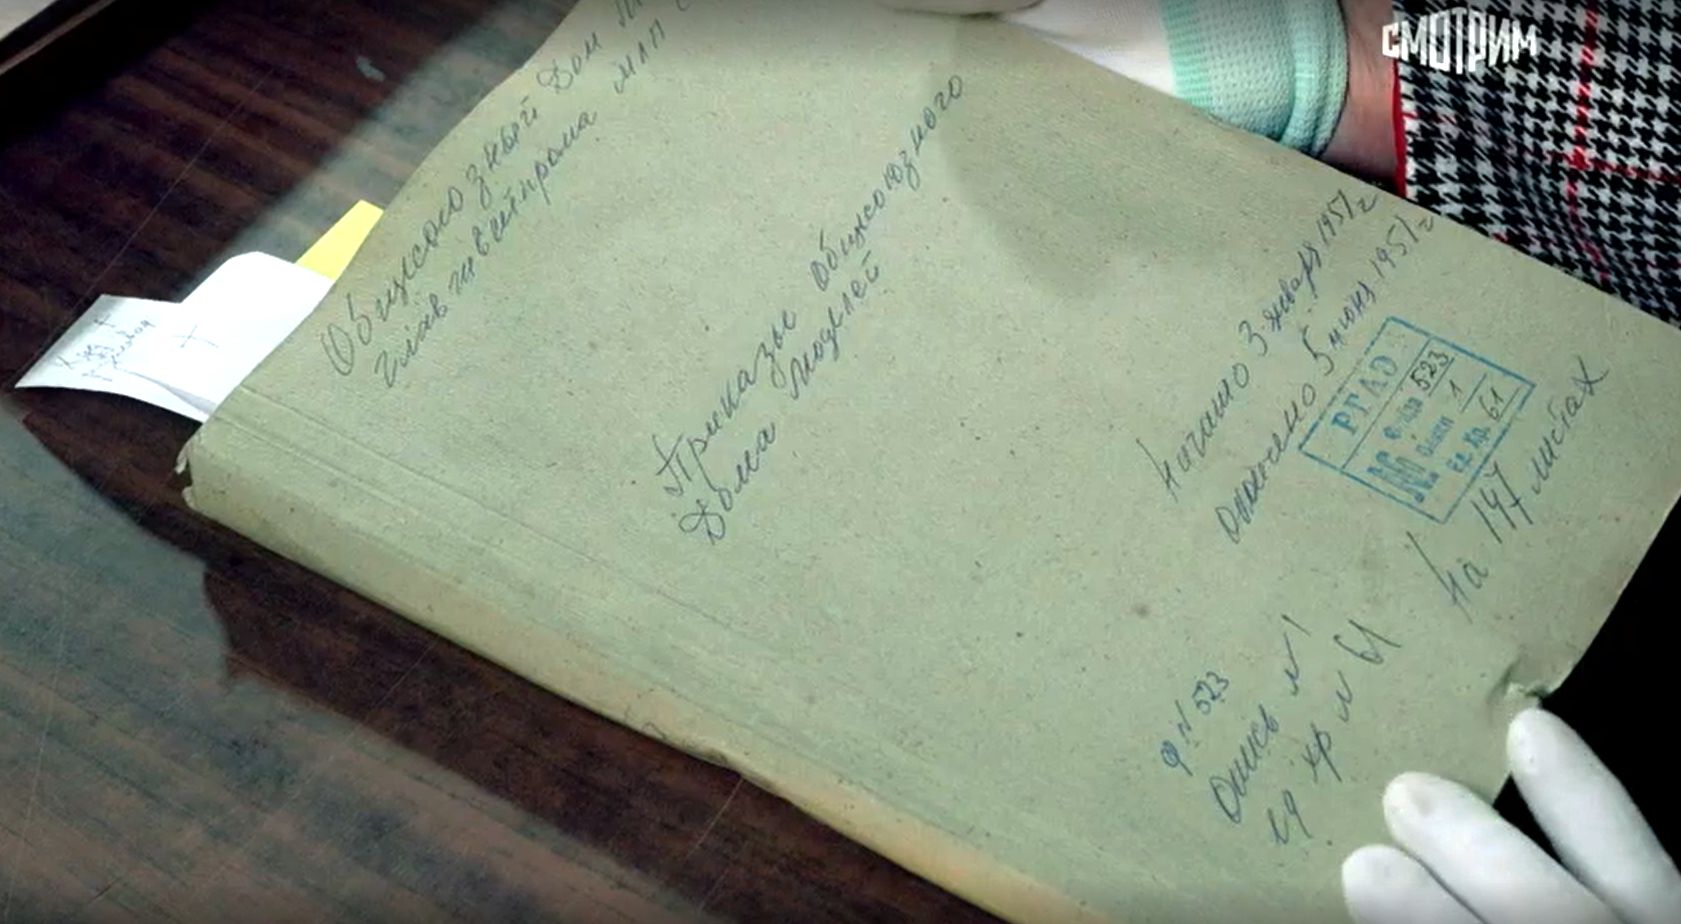 СМОТРИМ
Общесоюзный Дом
Главшвейпрома МЛП
Приказы общесоюзного
Дома моделей
Начато 3 января 1951 г
окончено 5 июня 1951 г
РГАЭ
№ фонда 523
описи 1
ед. хр. 61
На 147 листах
Ф N 523
Опись N 1
ед хр N 61